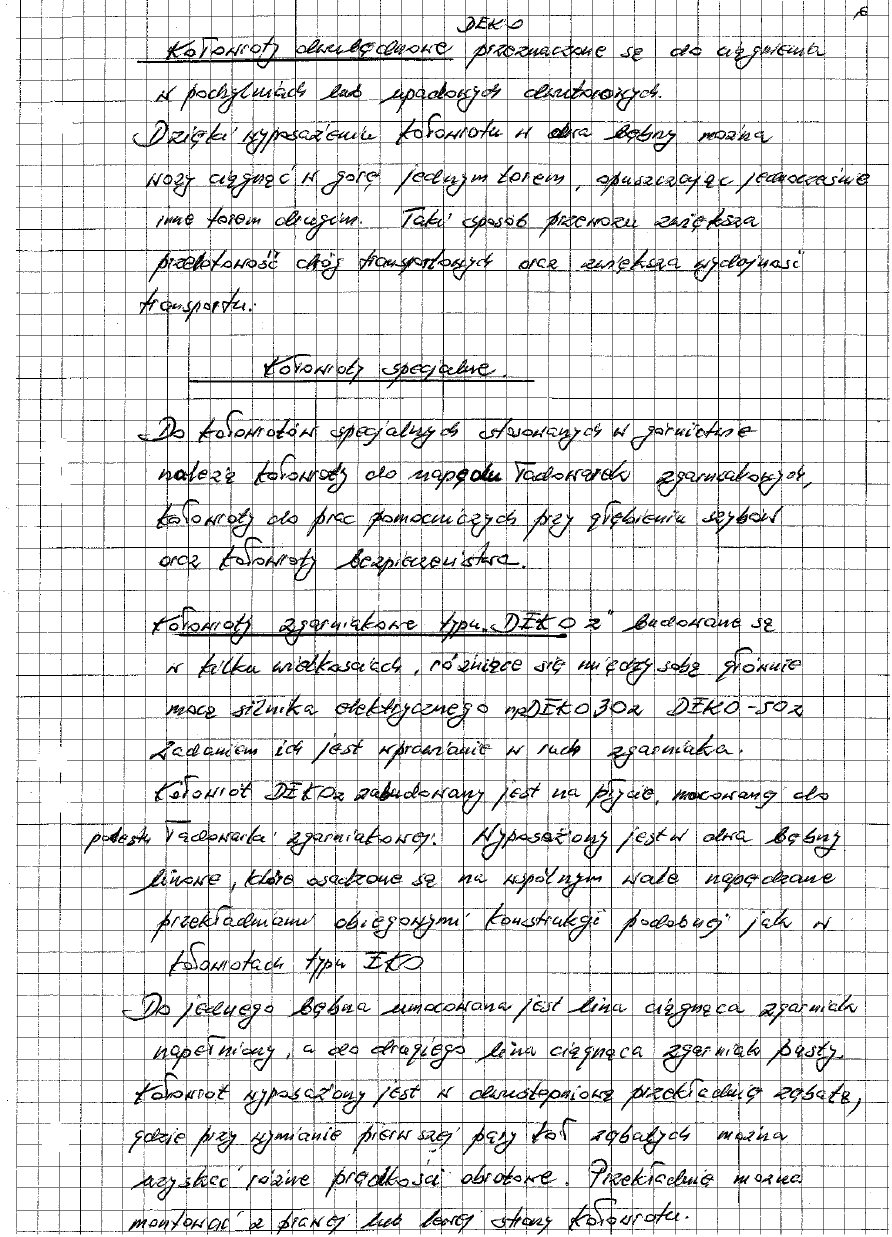 DEKO
Kołowroty dwubębnowe przeznaczone są do ciągnienia
w pochylniach lub upadowych dwutorowych.
Dzięki wyposażeniu kołowrotu w dwa bębny można
wozy ciągnąć w górę jednym torem, opuszczając jednocześnie
inne torem drugim. Taki sposób przewozu zwiększa
przelotowość dróg transportowych oraz zwiększa wydajność
transportu.
Kołowroty specjalne.
Do kołowrotów specjalnych stosowanych w górnictwie
należą kołowroty do napędu ładowarek zgarniakowych,
kołowroty do prac pomocniczych przy głębieniu szybów
oraz kołowroty bezpieczeństwa.
Kołowroty zgarniakowe typu „DEKO 2" budowane są
w kilku wielkościach, różniące się między sobą głównie
mocą silnika elektrycznego np DEKO 302 DEKO-502
Zadaniem ich jest wprawianie w ruch zgarniaka.
Kołowrót DEKO2 zabudowany jest na płycie, mocowanej do
pomostu ładowarki zgarniakowej. Wyposażony jest w dwa bębny
linowe, które osadzone są na wspólnym wale napędzane
przekładniami obiegowymi konstrukcji podobnej jak w
kołowrotach typu EKO
Do jednego bębna umocowana jest lina ciągnąca zgarniak
napełniony, a do drugiego lina ciągnąca zgarniak pusty.
Kołowrót wyposażony jest w dwustopniową przekładnię zębatą,
gdzie przy wymianie pierwszej pary kół zębatych można
uzyskać różne prędkości obrotowe. Przekładnię można
montować z prawej lub lewej strony kołowrotu.